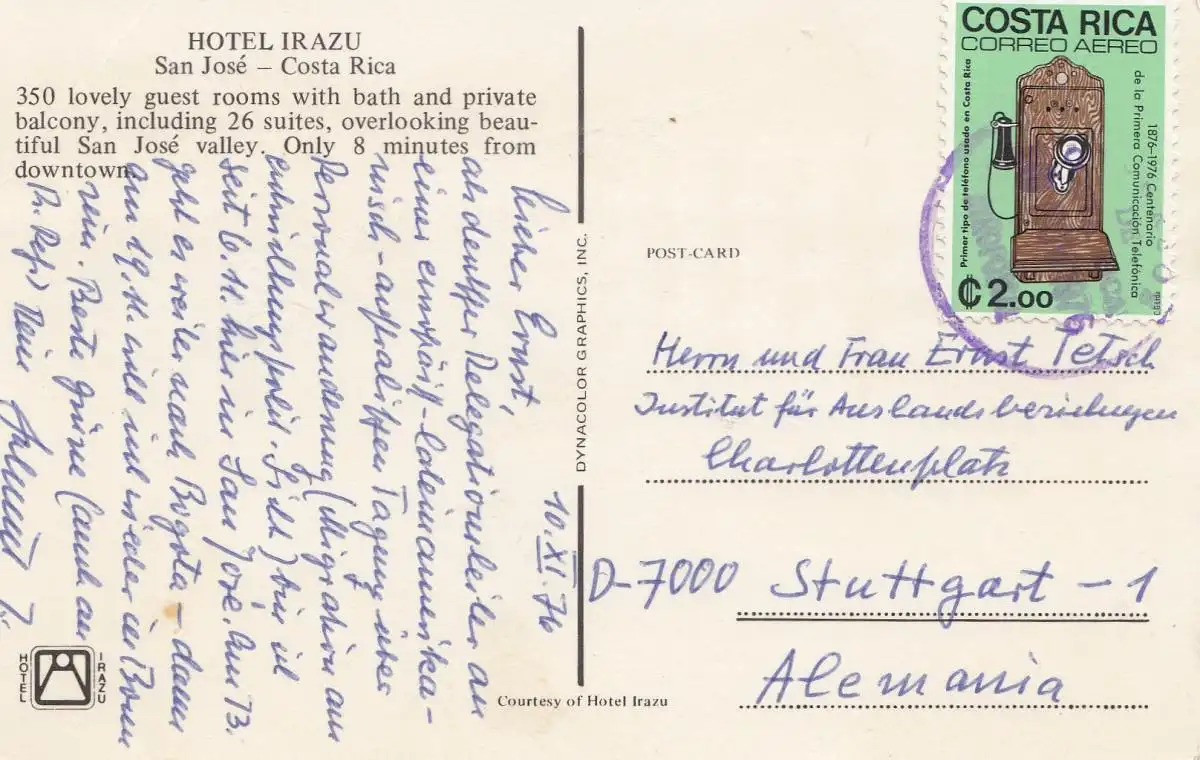 HOTEL IRAZU
San José – Costa Rica
350 lovely guest rooms with bath and private
balcony, including 26 suites, overlooking beau-
tiful San José valley. Only 8 minutes from
downtown.
10.XI.76
Lieber Ernst,
als deutscher Delegationsleiter an
einer europäisch-lateinamerika-
nisch-australischen Tagung über
Personalwanderung (Migration
seit 6.11. hier in San José. Am 13.
geht es weiter nach Bogota – dann
am 17.11. will ich wieder in Bonn
sein. Beste Grüsse (auch an
Dein Helmut
HOTEL IRAZU
DYNACOLOR GRAPHICS, INC.
Courtesy of Hotel Irazu
POST-CARD
COSTA RICA
CORREO AEREO
Primer tipo de teléfono usado en Costa Rica
1876-1976 Centenario
de la Primera Comunicación Telefónica
₡2.00
Herrn und Frau Ernst Tetsch
Institut für Auslandsbeziehungen
Charlottenplatz
D-7000 Stuttgart - 1
Alemania